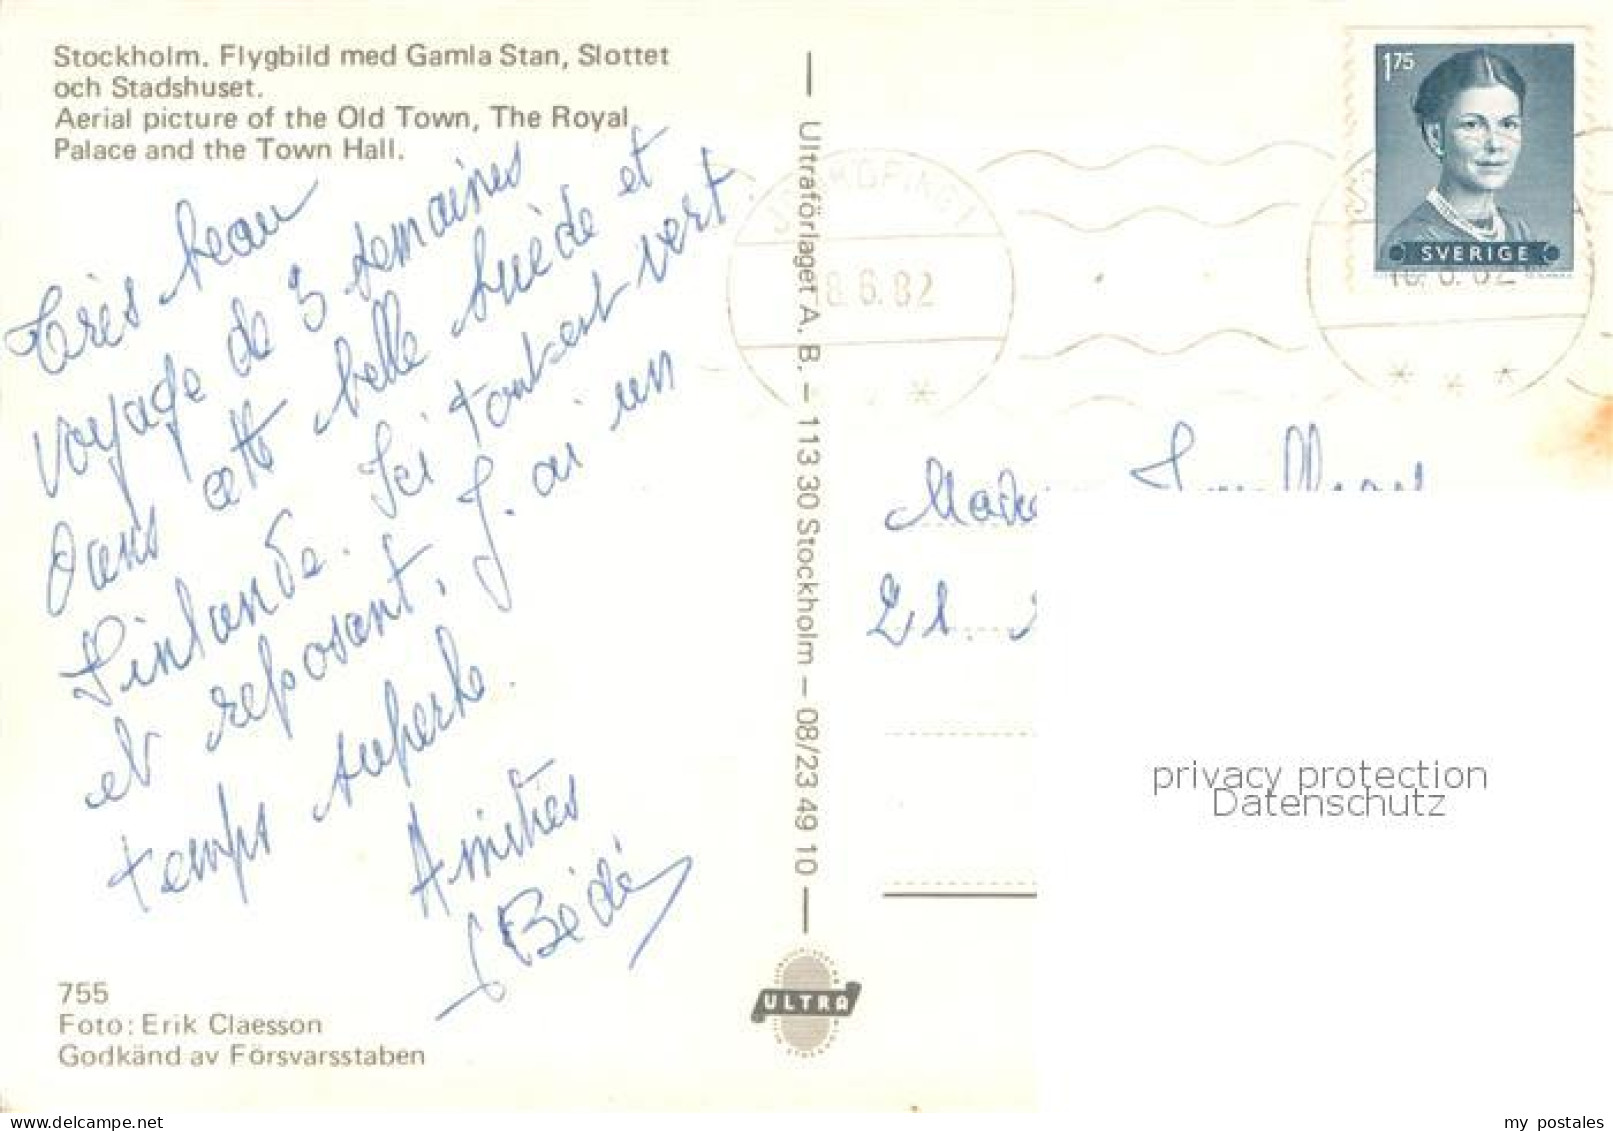 Stockholm. Flygbild med Gamla Stan, Slottet
och Stadshuset.
Aerial picture of the Old Town, The Royal
Palace and the Town Hall.
Très beau
voyage de 3 semaines
dans cette belle Suède et
Finlande. Ici tout est vert
et reposant, J'ai un
temps superbe.
Amitiés
Bédé
755
Foto: Erik Claesson
Godkänd av Försvarsstaben
Ultraförlaget A.B. – 113 30 Stockholm – 08/23 49 10
ULTRA
JÖNKÖPING 1
18.6.82
175
SVERIGE
18.6.82
privacy protection
Datenschutz
delcampe.net
my postales